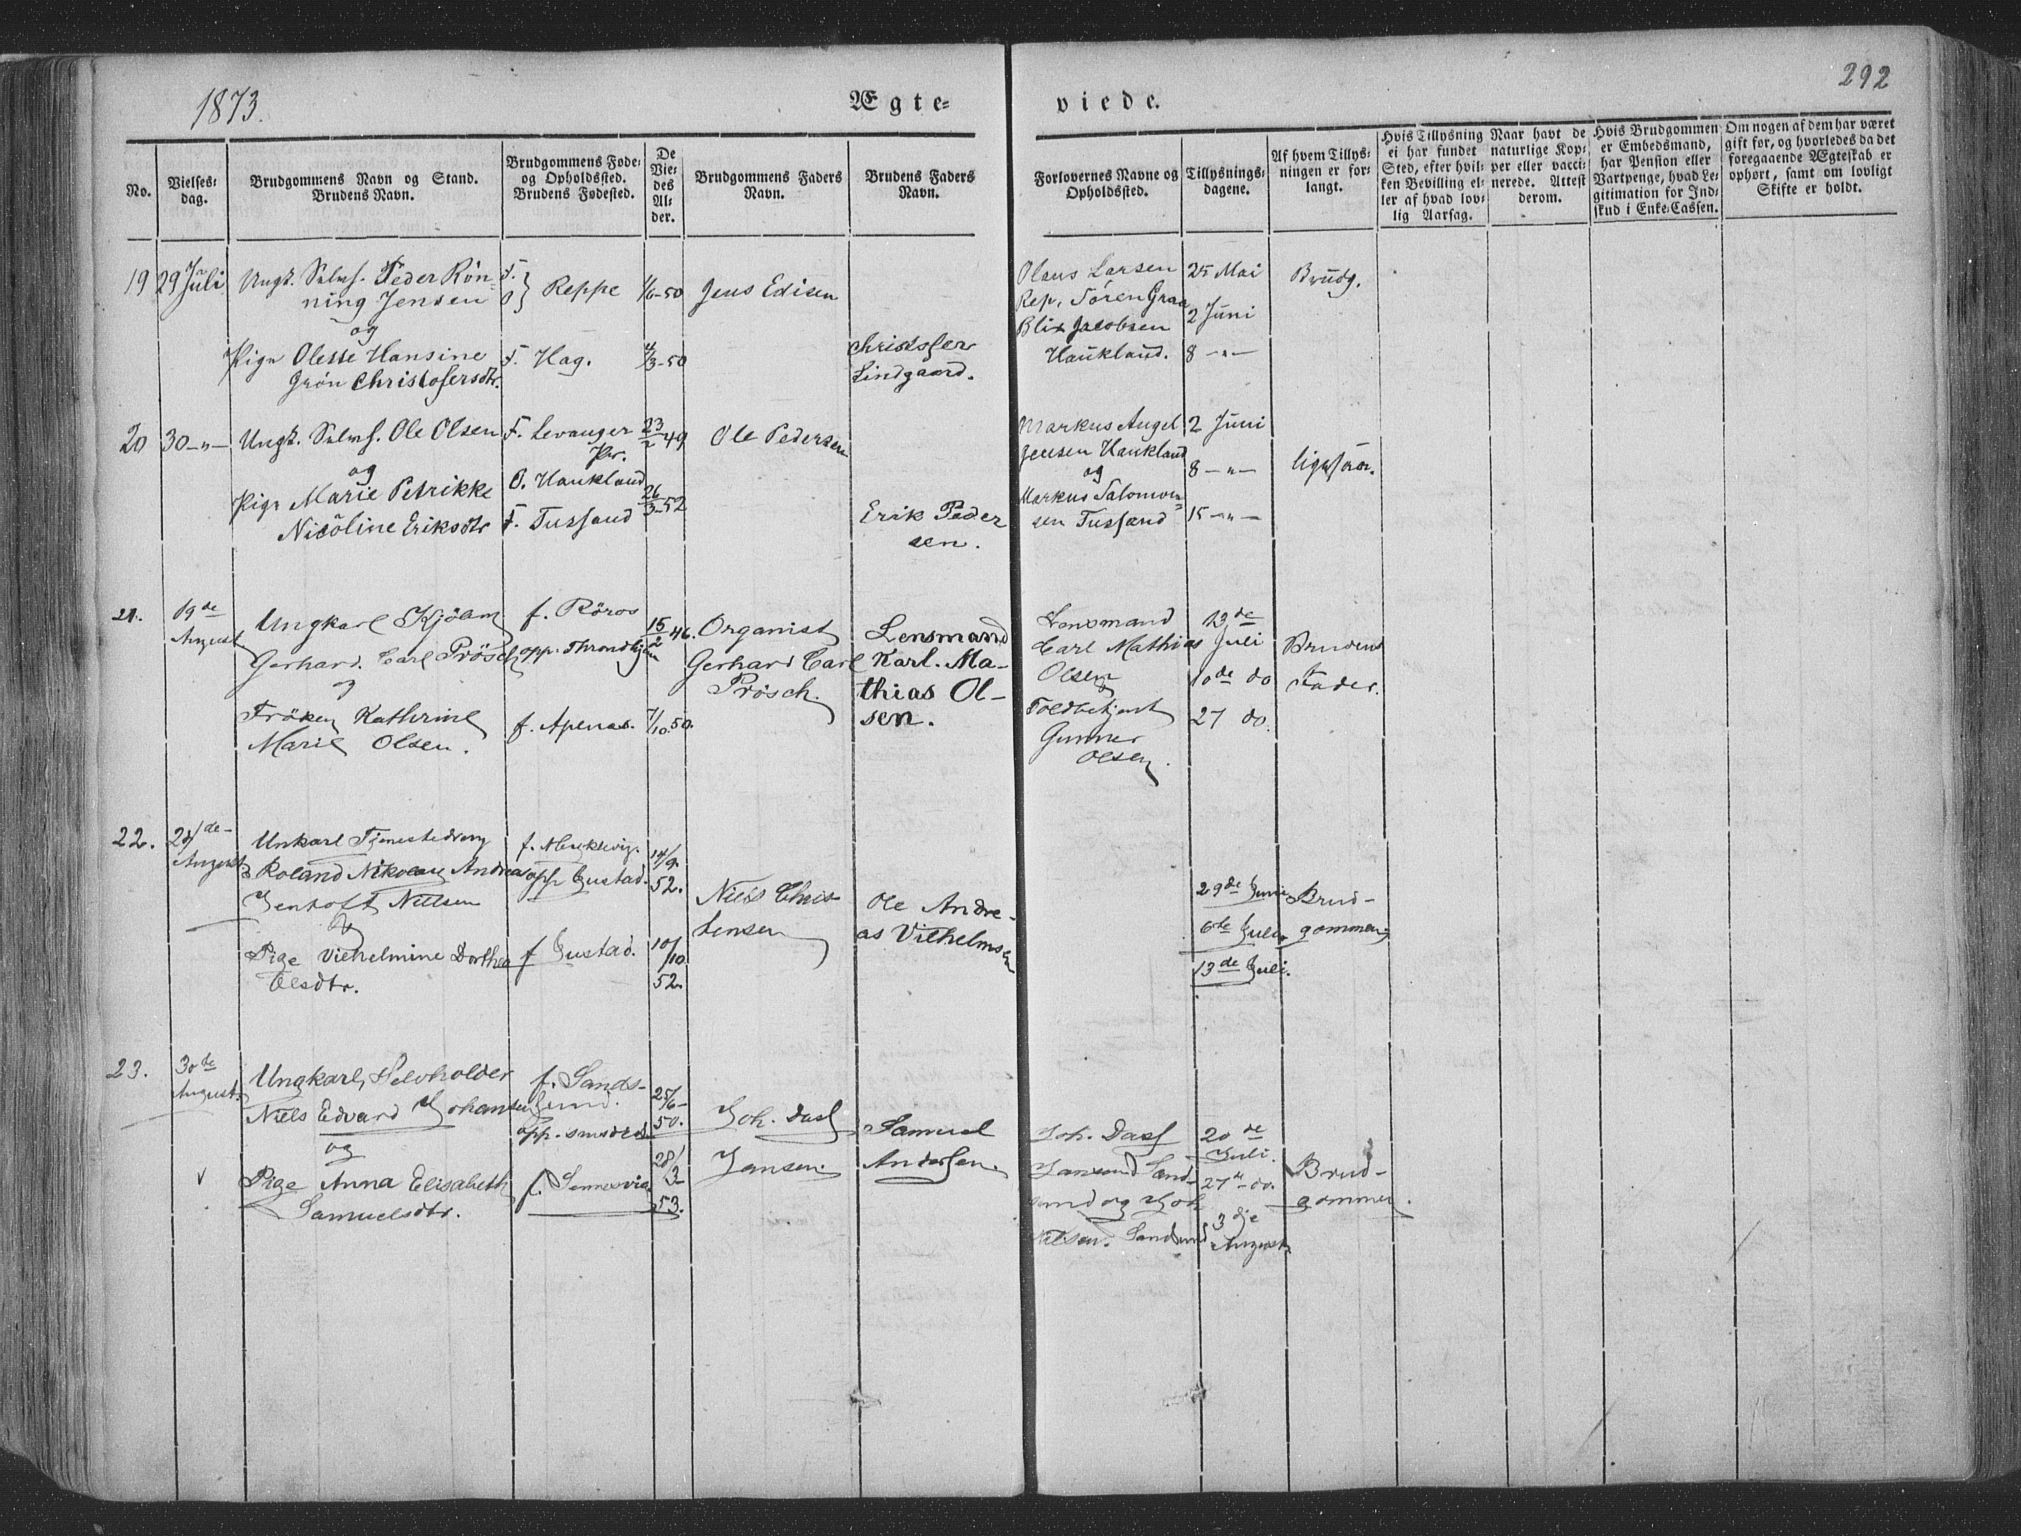 1873.
Ægte=
viede.
292
No.
Vielses=
dag.
Brudgommens Navn og Stand.
Brudens Navn.
Brudgommens Føde=
og Opholdssted.
Brudens Fødested.
De
Vie=
des
Al=
der.
Brudgommens Faders
Navn.
Brudens Faders
Navn.
Forlovernes Navne og
Opholdssted.
Tillysnings=
dagene.
Af hvem Tillys=
ningen er for=
langt.
Hvis Tillysning
ei har fundet
Sted, efter hvil=
ken Bevilling el=
ler af hvad lov=
lig Aarsag.
Naar havt de
naturlige Kop=
per eller vacci=
nerede. Attest
derom.
Hvis Brudgommen
er Embedsmand,
har Pension eller
Vartpenge, hvad Le=
gitimation for Ind=
skud i Enke=Cassen.
Om nogen af dem har været
gift før, og hvorledes da det
foregaaende Ægteskab er
ophørt, samt om lovligt
Skifte er holdt.
19
29 Juli
Ungk. Selvs. Peder Røn=
ning Jensen
og
Pige Olette Hansine
Grøn Christofersdtr.
F.
O } Reppe
F. Hag.
1/6-50
4/3-50
Jens Edisen
Christofer
Lindgaard.
Olaus Larsen
Rep, Søren Graa
Blix Jacobsen
Haukland.
25 Mai
2 Juni
8 -"-
Brudg.
20
30 -"-
Ungk. Selvs. Ole Olsen
og
Pige Marie Petrikke
Nicoline Eriksdtr
F. Levanger
Pr.
O. Haukland
F. Tussand
23/2 49
26/3-52
Ole Pedersen
Erik Peder
sen.
Markus Angel
Jensen Haukland
og
Markus Salomon=
sen Tussand
2 Juni
8 -"-
15 -"-
ligesaa.
21.
19de
August
Ungkarl Kjölam
Gerhard. Carl Prösch
og
Fröken Kathrine
Marie Olsen.
f. Röros
opp. Throndhjem
f. Apenæs.
15/2 46.
7/10.50.
Organist
Gerhard Carl
Prösch.
Lensmand
Karl. Ma-
thias Ol-
sen.
Lensmand
Carl Mathias
Olsen
&
Toldbetjent
Gunner
Olsen.
13de
Juli
de do
27 do.
Brudens
Fader.
22.
de
August
Unkarl Tjenestedreng
Roland Nikolay Andreas
Jentoft Nielsen
&
Pige Vilhelmine Dorthea
Olsdtr.
f.
opp Gustad.
f Gustad.
14/9.
52.
10/10
52.
Niels Chris
tensen
Ole Andre-
as Vilhelmsen
29de Juni
6te Juli
13de Juli.
Brud-
gommen
23.
30de
August
Ungkarl, Selvholder
Niels Edvard Johansen
og
Pige Anna Elisabeth
Samuelsdtr.
f. Sands-
sund.
opp.
f. Sennesvig.
25/6-
50.
28/3
53.
Joh. Dass
Jansen.
Samuel
Andersen.
Joh. Dass
Jansen Sand-
sund og Joh
Nilsen. Sandsund
20de
Juli.
27de do.
3dje
August
Brud-
gommen.